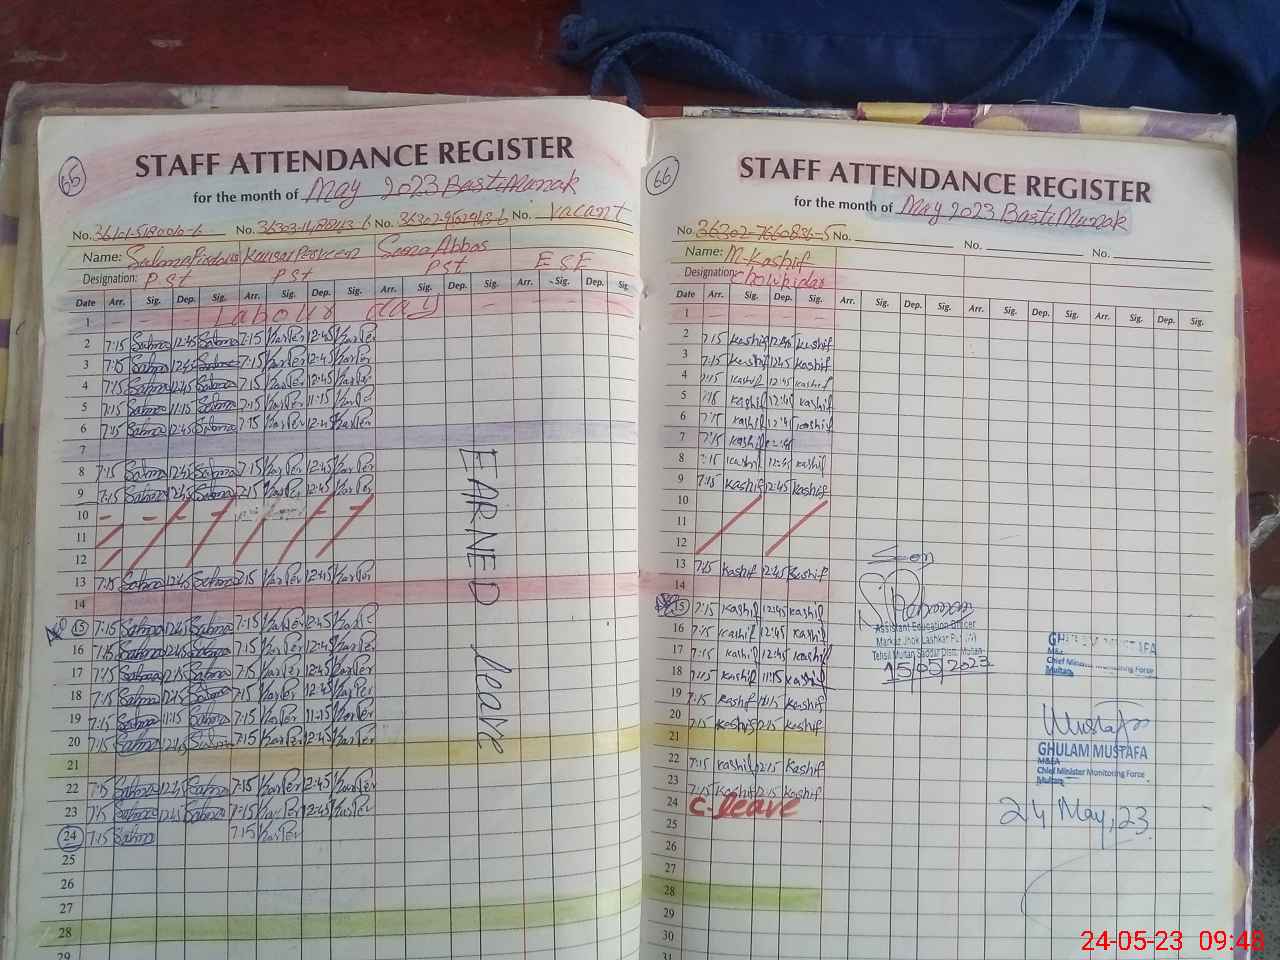 65
STAFF ATTENDANCE REGISTER
for the month of May 2023 Basti Munak
No. No. No. No. Vacant
Name: Salma Firdous Kausar Perveen Sana Abbas
Designation: P.St PSt PSt ESE
Date Arr. Sig. Dep. Sig. Arr. Sig. Dep. Sig. Arr. Sig. Dep. Sig. Arr. Sig. Dep. Sig.
1 Labour day
2 7:15 Salma 12:45 Salma 7:15 KarPer 12:45 KarPer
3 7:15 Salma 12:45 Salma 7:15 KarPer 12:45 KarPer
4 7:15 Salma 12:45 Salma 7:15 KarPer 12:45 KarPer
5 7:15 Salma 11:15 Salma 7:15 KarPer 11:15 KarPer
6 7:15 Salma 12:45 Salma 7:15 KarPer 12:45 KarPer
7
8 7:15 Salma 12:45 Salma 7:15 KarPer 12:45 KarPer
9 7:15 Salma 12:45 Salma 7:15 KarPer 12:45 KarPer
10
11
12
13 7:15 Salma 12:45 Salma 7:15 KarPer 12:45 KarPer
14
15 7:15 Salma 12:45 Salma 7:15 KarPer 12:45 KarPer
16 7:15 Salma 12:45 Salma 7:15 KarPer 12:45 KarPer
17 7:15 Salma 12:45 Salma 7:15 KarPer 12:45 KarPer
18 7:15 Salma 12:45 Salma 7:15 KarPer 12:45 KarPer
19 7:15 Salma 11:15 Salma 7:15 KarPer 11:15 KarPer
20 7:15 Salma 12:45 Salma 7:15 KarPer 12:45 KarPer
21
22 7:15 Salma 12:45 Salma 7:15 KarPer 12:45 KarPer
23 7:15 Salma 12:45 Salma 7:15 KarPer 12:45 KarPer
24 7:15 Salma 7:15 KarPer
25
26
27
28
29
EARNED leave
66
STAFF ATTENDANCE REGISTER
for the month of May 2023 Basti Munak
No. 36302-7660836-5 No. No. No.
Name: M-Kashif
Designation: Chowkidar
Date Arr. Sig. Dep. Sig. Arr. Sig. Dep. Sig. Arr. Sig. Dep. Sig. Arr. Sig. Dep. Sig.
1
2 7:15 Kashif 12:45 Kashif
3 7:15 Kashif 12:45 Kashif
4 7:15 Kashif 12:45 Kashif
5 7:15 Kashif 12:45 Kashif
6 7:15 Kashif 12:45 Kashif
7 7:15 Kashif
8 7:15 Kashif 12:45 Kashif
9 7:15 Kashif 12:45 Kashif
10
11
12
13 7:15 Kashif 12:45 Kashif
14
15 7:15 Kashif 12:45 Kashif
16 7:15 Kashif 12:45 Kashif
17 7:15 Kashif 12:45 Kashif
18 7:15 Kashif 11:15 Kashif
19 7:15 Kashif 11:15 Kashif
20 7:15 Kashif 12:15 Kashif
21
22 7:15 Kashif 12:15 Kashif
23 7:15 Kashif 12:15 Kashif
24 C-leave
25
26
27
28
29
30
31
Seen
Assistant Education Officer
Markaz Jhok Lashkar Pur (W)
Tehsil Multan Saddar Distt. Multan
15/05/2023
M&EA
Chief Minister Monitoring Force
Multan
Mustafa
GHULAM MUSTAFA
M&EA
Chief Minister Monitoring Force
Multan
24 May, 23
24-05-23 09:48